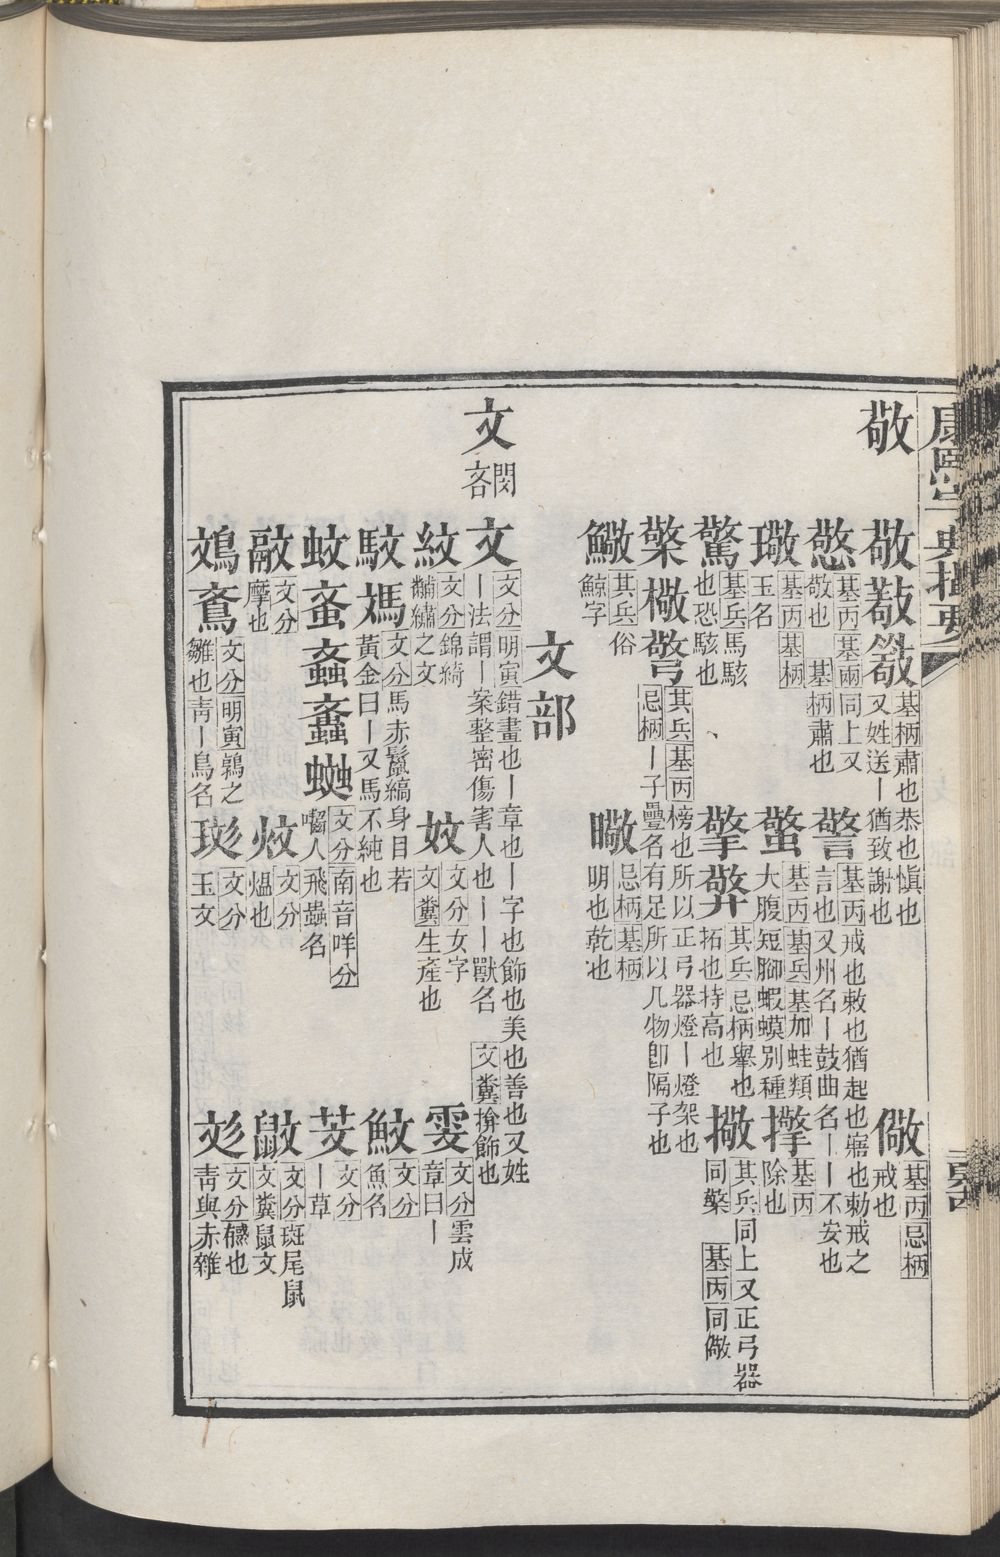 康熙字典撮要
敬
敬 𢾕 𢽬 基柄肅也恭也愼也又姓送丨猶致謝也
儆 基丙忌柄戒也
憼 基丙基兩同上又敬也 基柄肅也
警 基丙戒也敕也猶起也寤也勅戒之言也又州名丨鼓曲名丨丨不安也
璥 基丙基柄玉名
蟼 基丙基兵基加蛙類大腹短腳蝦蟆別種
擏 基丙除也
驚 基兵馬駭也恐駭也
擎 其兵忌柄舉也拓也持高也
撒 其兵同上又正弓器同檠 基丙同儆
檠 橵 其兵基丙榜也所以正弓器燈丨燈架也忌柄丨子罍名有足所以几物卽隔子也
鱤 其兵俗鯨字
曔 忌柄基柄明也乾也
文部
文 閔吝
文 文分明寅錯畫也丨章也丨字也飾也美也善也又姓丨法謂丨案整密傷害人也丨丨獸名 文糞揜飾也
紋 文分錦綺黼繡之文
妏 文分女字 文糞生產也
雯 文分雲成章曰丨
駇 媽 文分馬赤鬣縞身目若黃金曰丨又馬不純也
魰 文分魚名
蚊 蚉 螡 蟁 文分南音咩分囓人飛蟲名
芠 文分丨草
㪬 文分摩也
炆 文分熅也
鼤 文分斑尾鼠文糞鼠文
鴍 文分明寅鶉之雛也靑丨鳥名
玟 文分玉文
彣 文分𢒈也靑與赤雜